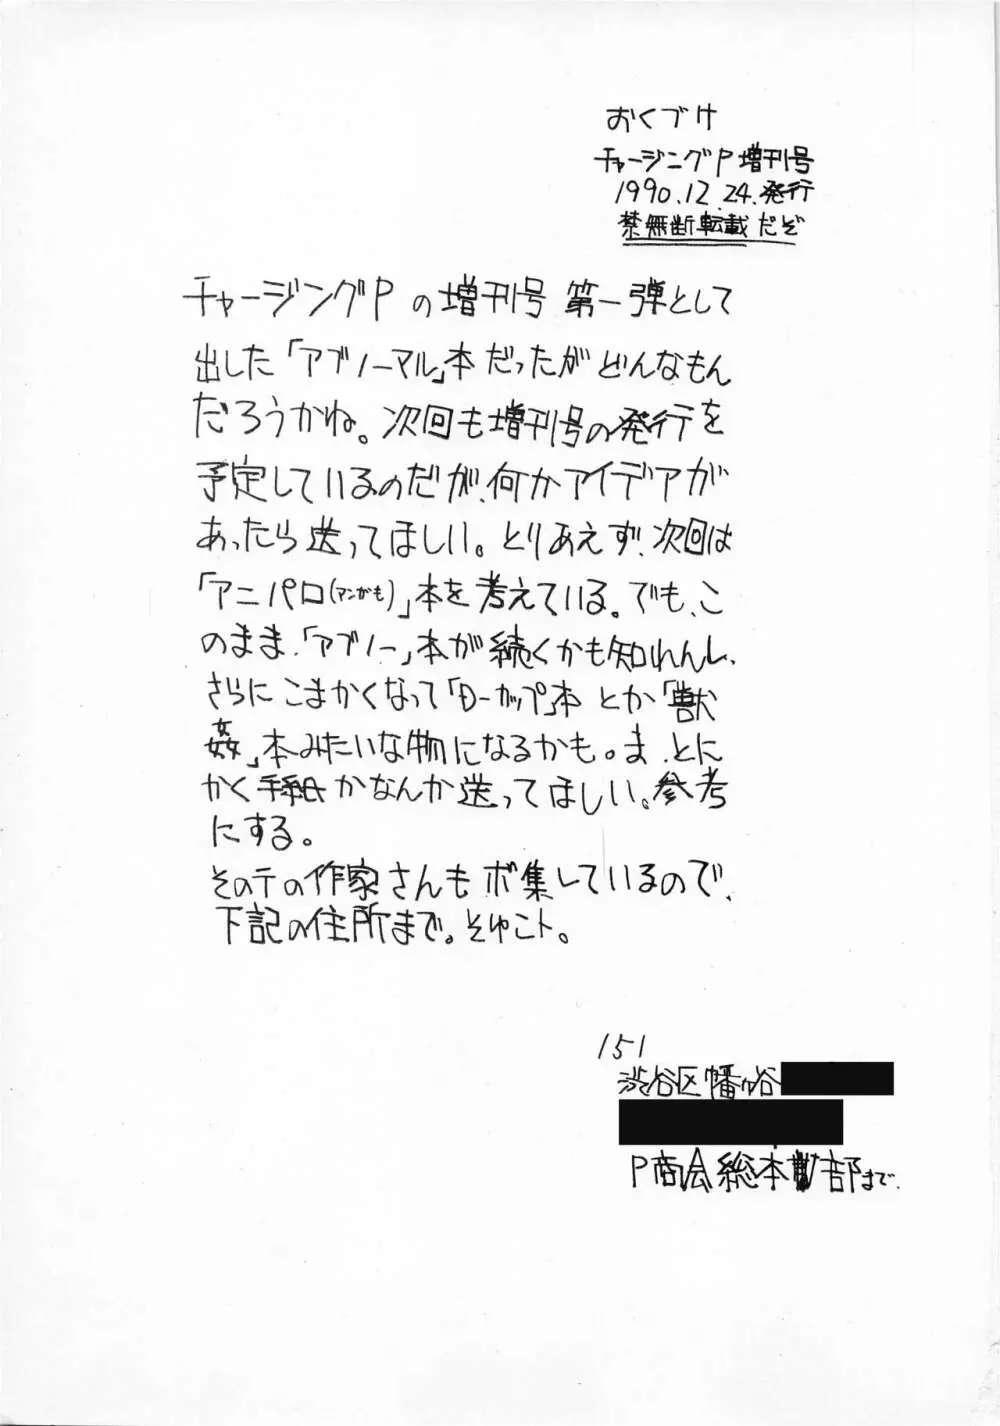 おくづけ
チャージングP増刊号
1990.12.24.発行
禁無断転載だぞ
チャージングPの増刊号 第一弾として
出した「アブノーマル」本だったがどんなもん
だろうかね。次回も増刊号の発行を
予定しているのだが、何かアイデアが
あったら送ってほしい。とりあえず、次回は
「アニパロ(マンガも)」本を考えている。でも、こ
のまま、「アブノー」本が続くかも知れんし、
さらにこまかくなって「Dーカップ」本とか「獣
姦」本みたいな物になるかも。ま、とに
かく手紙かなんか送ってほしい。参考
にする。
そのテの作家さんもボ集しているので、
下記の住所まで。そゆコト。
151
渋谷区幡ヶ谷
P商会総本部まで.